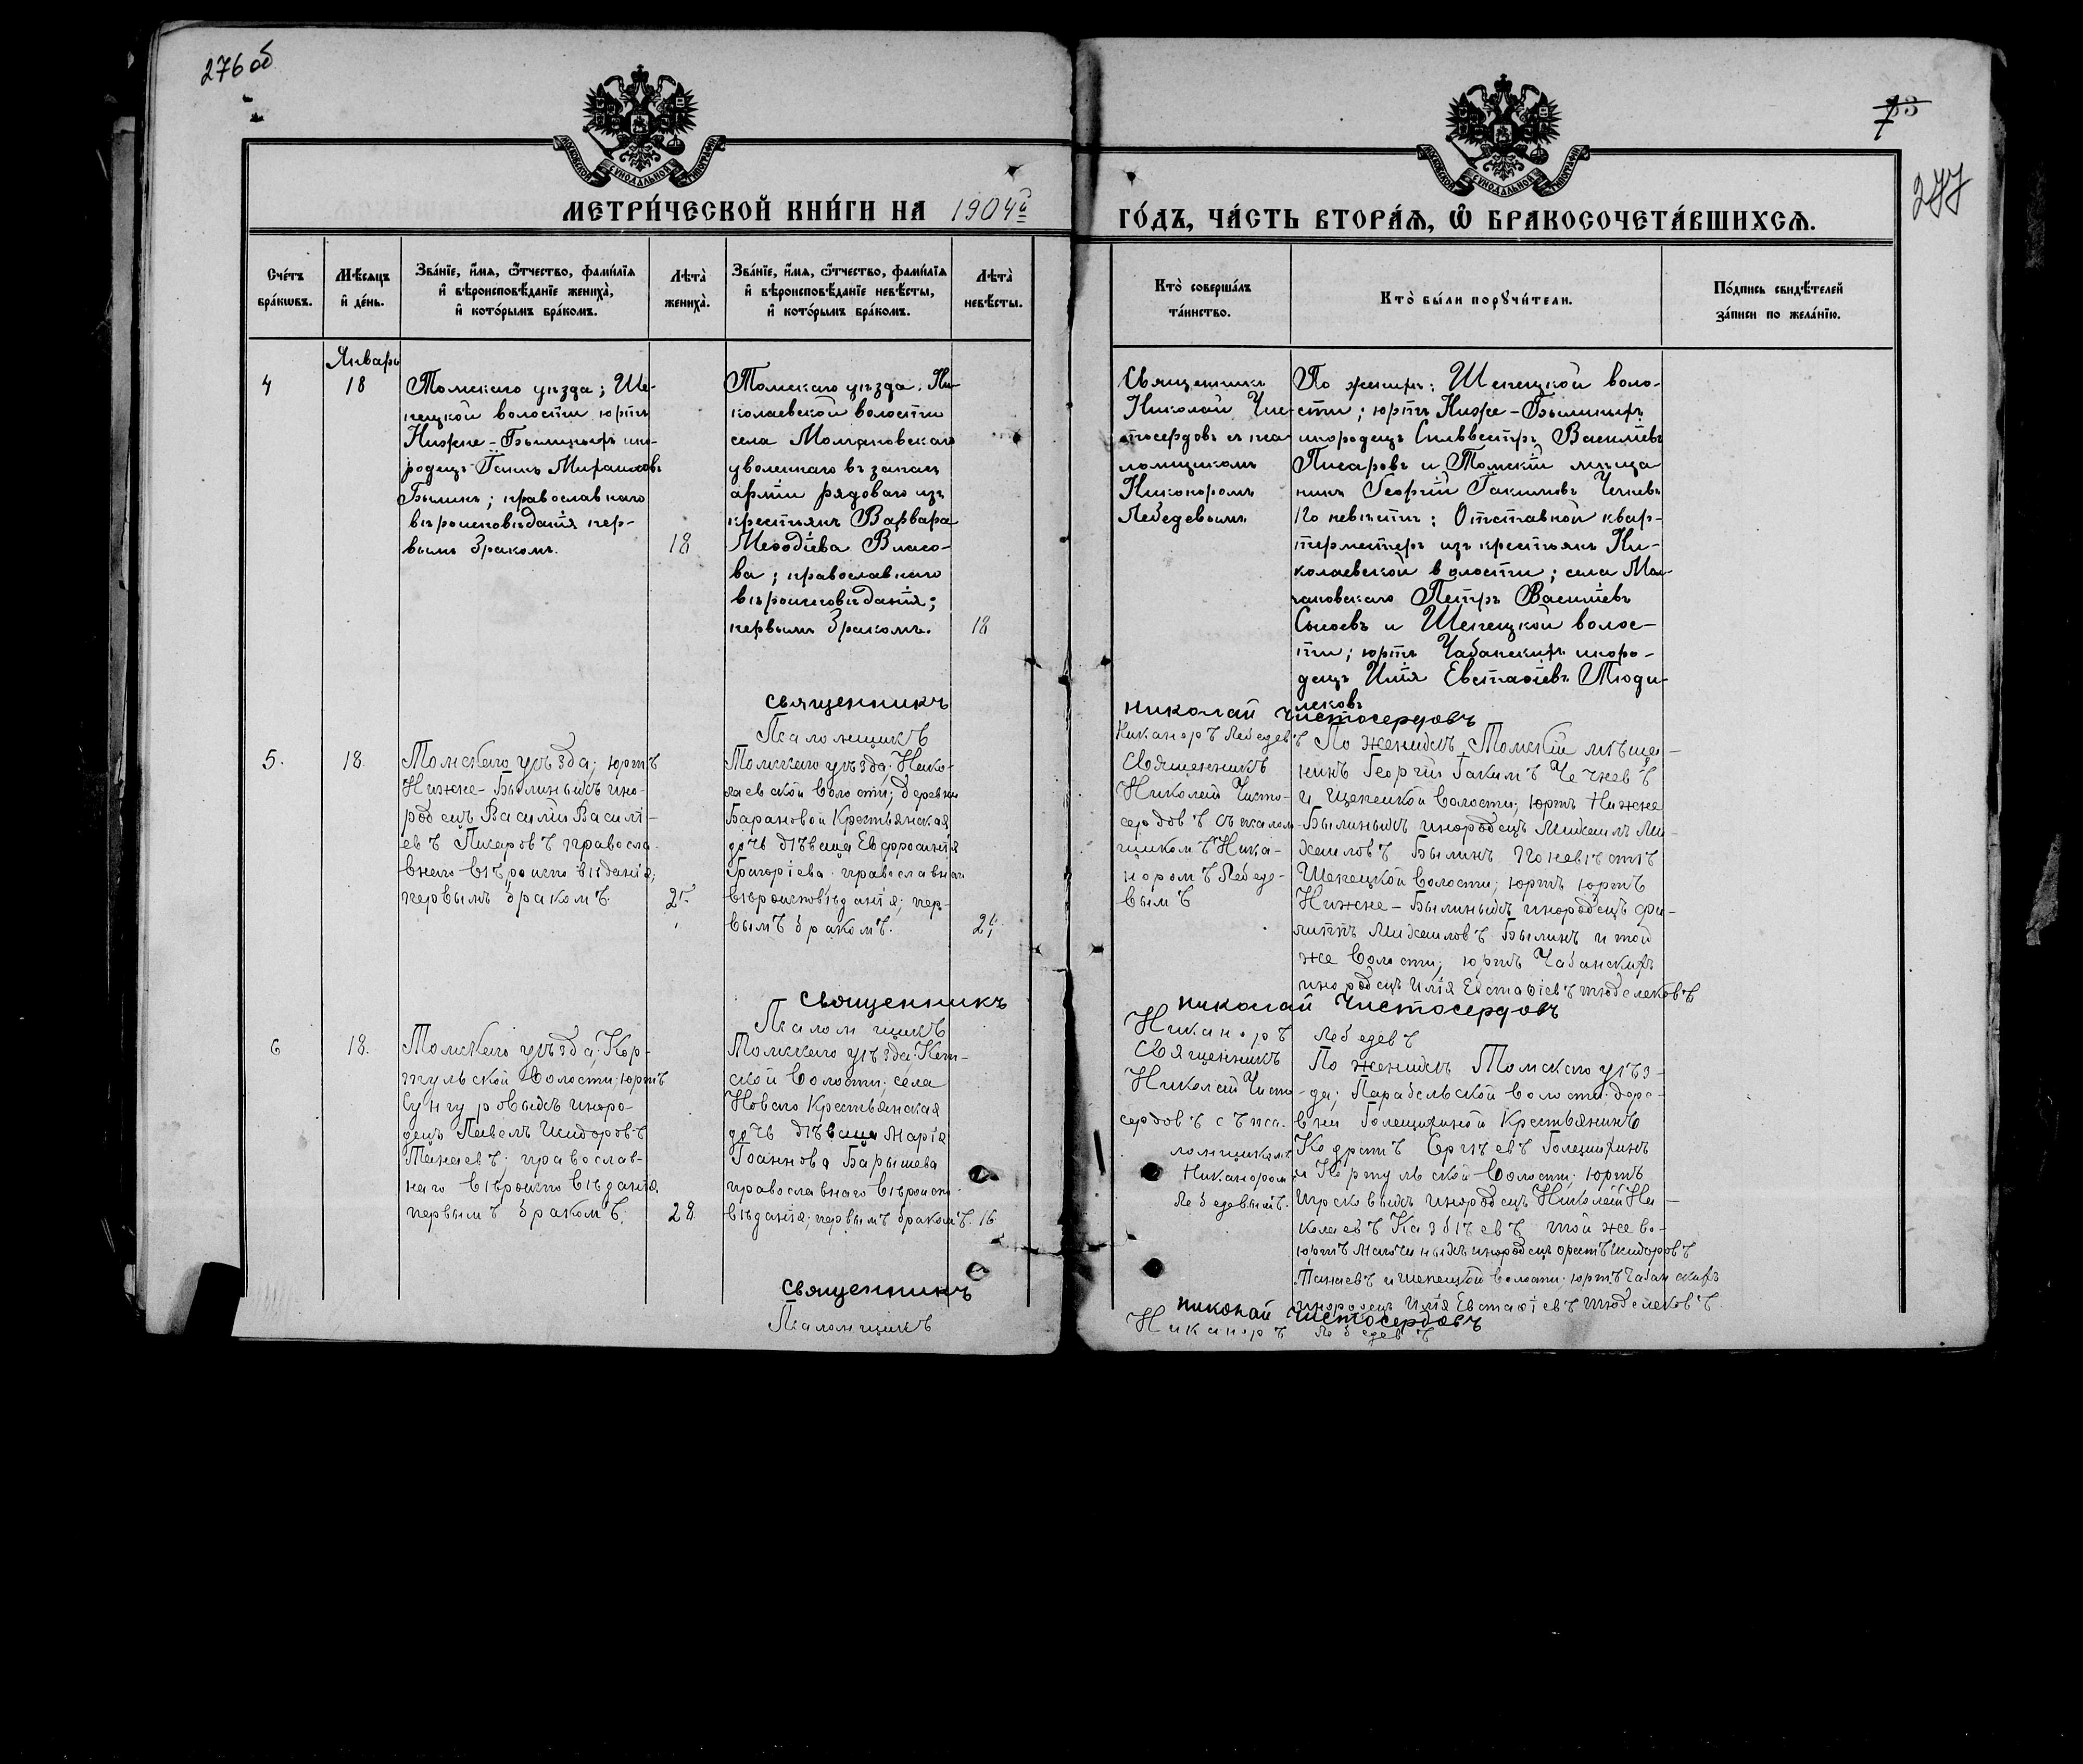 276 об
73
277
МОСКОВСКОЙ СѴНОДАЛЬНОЙ ТИПОГРАФІИ
МОСКОВСКОЙ СѴНОДАЛЬНОЙ ТИПОГРАФІИ
МЕТРИ́ЧЕСКОЙ КНИ́ГИ НА 1904й
ГО́ДЪ, ЧА́СТЬ ВТОРА́Ѧ, Ѽ БРАКОСОЧЕТА́ВШИХСѦ.
Сче́тъ
бра́кѡвъ.
Мѣ́сяцъ
и҆ де́нь.
Зва́нїе, и҆́мя, ѻ҆́тчество, фами́лїя
и҆ вѣроисповѣ́данїе жениха̀,
и҆ кото́рымъ бра́комъ.
Лѣта̀
жениха̀.
Зва́нїе, и҆́мя, ѻ҆́тчество, фами́лїя
и҆ вѣроисповѣ́данїе невѣ́сты,
и҆ кото́рымъ бра́комъ.
Лѣта̀
невѣ́сты.
Кто̀ соверша́лъ
та́инство.
Кто̀ бы́ли порꙋчи́тели.
По́дпись свидѣ́телей
за́писи по жела́нїю.
4
Январь
18
Томскаго уѣзда; Ше-
пецкой волости юртъ
Нижне-Былиныхъ ино-
родецъ Михаиловъ
Былинъ; православнаго
вѣроисповѣданія пер-
вымъ бракомъ.
18
Томскаго уѣзда; Ни-
колаевской волости
села Молчановскаго
уволеннаго въ запасъ
арміи рядоваго изъ
крестьянъ Варвара
Меѳодіева Власо-
ва; православнаго
вѣроисповѣданія;
первымъ бракомъ.
18
Священникъ
Николай Чис-
тосердовъ съ пса-
ломщикомъ
Никоноромъ
Лебедевымъ
По женихѣ: Шепецкой воло-
сти; юртъ Ниже-Былиныхъ
инородецъ Сильвестръ Васильевъ
Писаровъ и Томскій мѣща
нинъ Георгій Іакимовъ
По невѣстѣ: Отставной квар-
термистеръ изъ крестьянъ Ни-
колаевской волости; села Мол-
чановскаго Петръ Васильевъ
и Шепецкой волос-
ти; юртъ Чабанскихъ иноро-
децъ Илія Евстаѳіевъ Тюде-
лековъ
священникъ
николай Чистосердовъ
Псаломщикъ
Никаноръ Лебедевъ
5.
18.
Томскаго уѣзда; юртъ
Нижне-Былиныхъ ино-
родецъ Василій Василі-
евъ Писаровъ правосла-
внаго вѣроисповѣданія;
первымъ бракомъ.
25
Томскаго уѣзда; Нико-
лаевской волости; деревни
Барановой Крестьянская
дочь дѣвица Евфросинія
Григоріева православнаго
вѣроисповѣданія; пер-
вымъ бракомъ.
21
Священникъ
Николай Чисто-
сердовъ съ псалом-
щикомъ Ника-
норомъ Лебеде-
вымъ
По женихѣ Томскій мѣща-
нинъ Георгій Іакимъ
и Шепецкой волости; юртъ Нижне
Былиныхъ инородецъ Михаилъ Ми-
хаиловъ Былинъ По невѣстѣ
Шепецкой волости; юртъ юртъ
Нижне-Былиныхъ инородецъ Фи-
липпъ Михаиловъ Былинъ и той
же волости; юртъ Чабанскихъ
инородецъ Илія Евстаѳіевъ Тюделековъ
священникъ
николай Чистосердовъ
Псаломщикъ
Никаноръ Лебедевъ
6
18.
Томскаго уѣзда; Кор-
гульской волости; юртъ
Сунгуровыхъ иноро-
децъ Павелъ Исидоровъ
Танаевъ; православ-
наго вѣроисповѣданія
первымъ бракомъ.
28.
Томскаго уѣзда; Кет-
ской волости; села
Новаго Крестьянская
дочь дѣвица Марія
Іоаннова Барышева
православнаго вѣроиспо-
вѣданія; первымъ бракомъ.
16.
Священникъ
Николай Чисто-
сердовъ съ пса-
ломщикомъ
Никаноромъ
Лебедевымъ.
По женихѣ Томскаго уѣз-
да; Парабельской волости; дере-
вни Голещихиной Крестьянинъ
Кодратъ Сергѣевъ Голещихинъ
и Коргульской волости; юртъ
инородецъ Николай Ни-
колаевъ Казбичевъ той же во-
юртъ инородецъ Исидоровъ
Танаевъ и Шепецкой волости юртъ Чабанскихъ
инородецъ Илія Евстаѳіевъ Тюделековъ.
священникъ
николай Чистосердовъ
Псаломщикъ
Никаноръ Лебедевъ